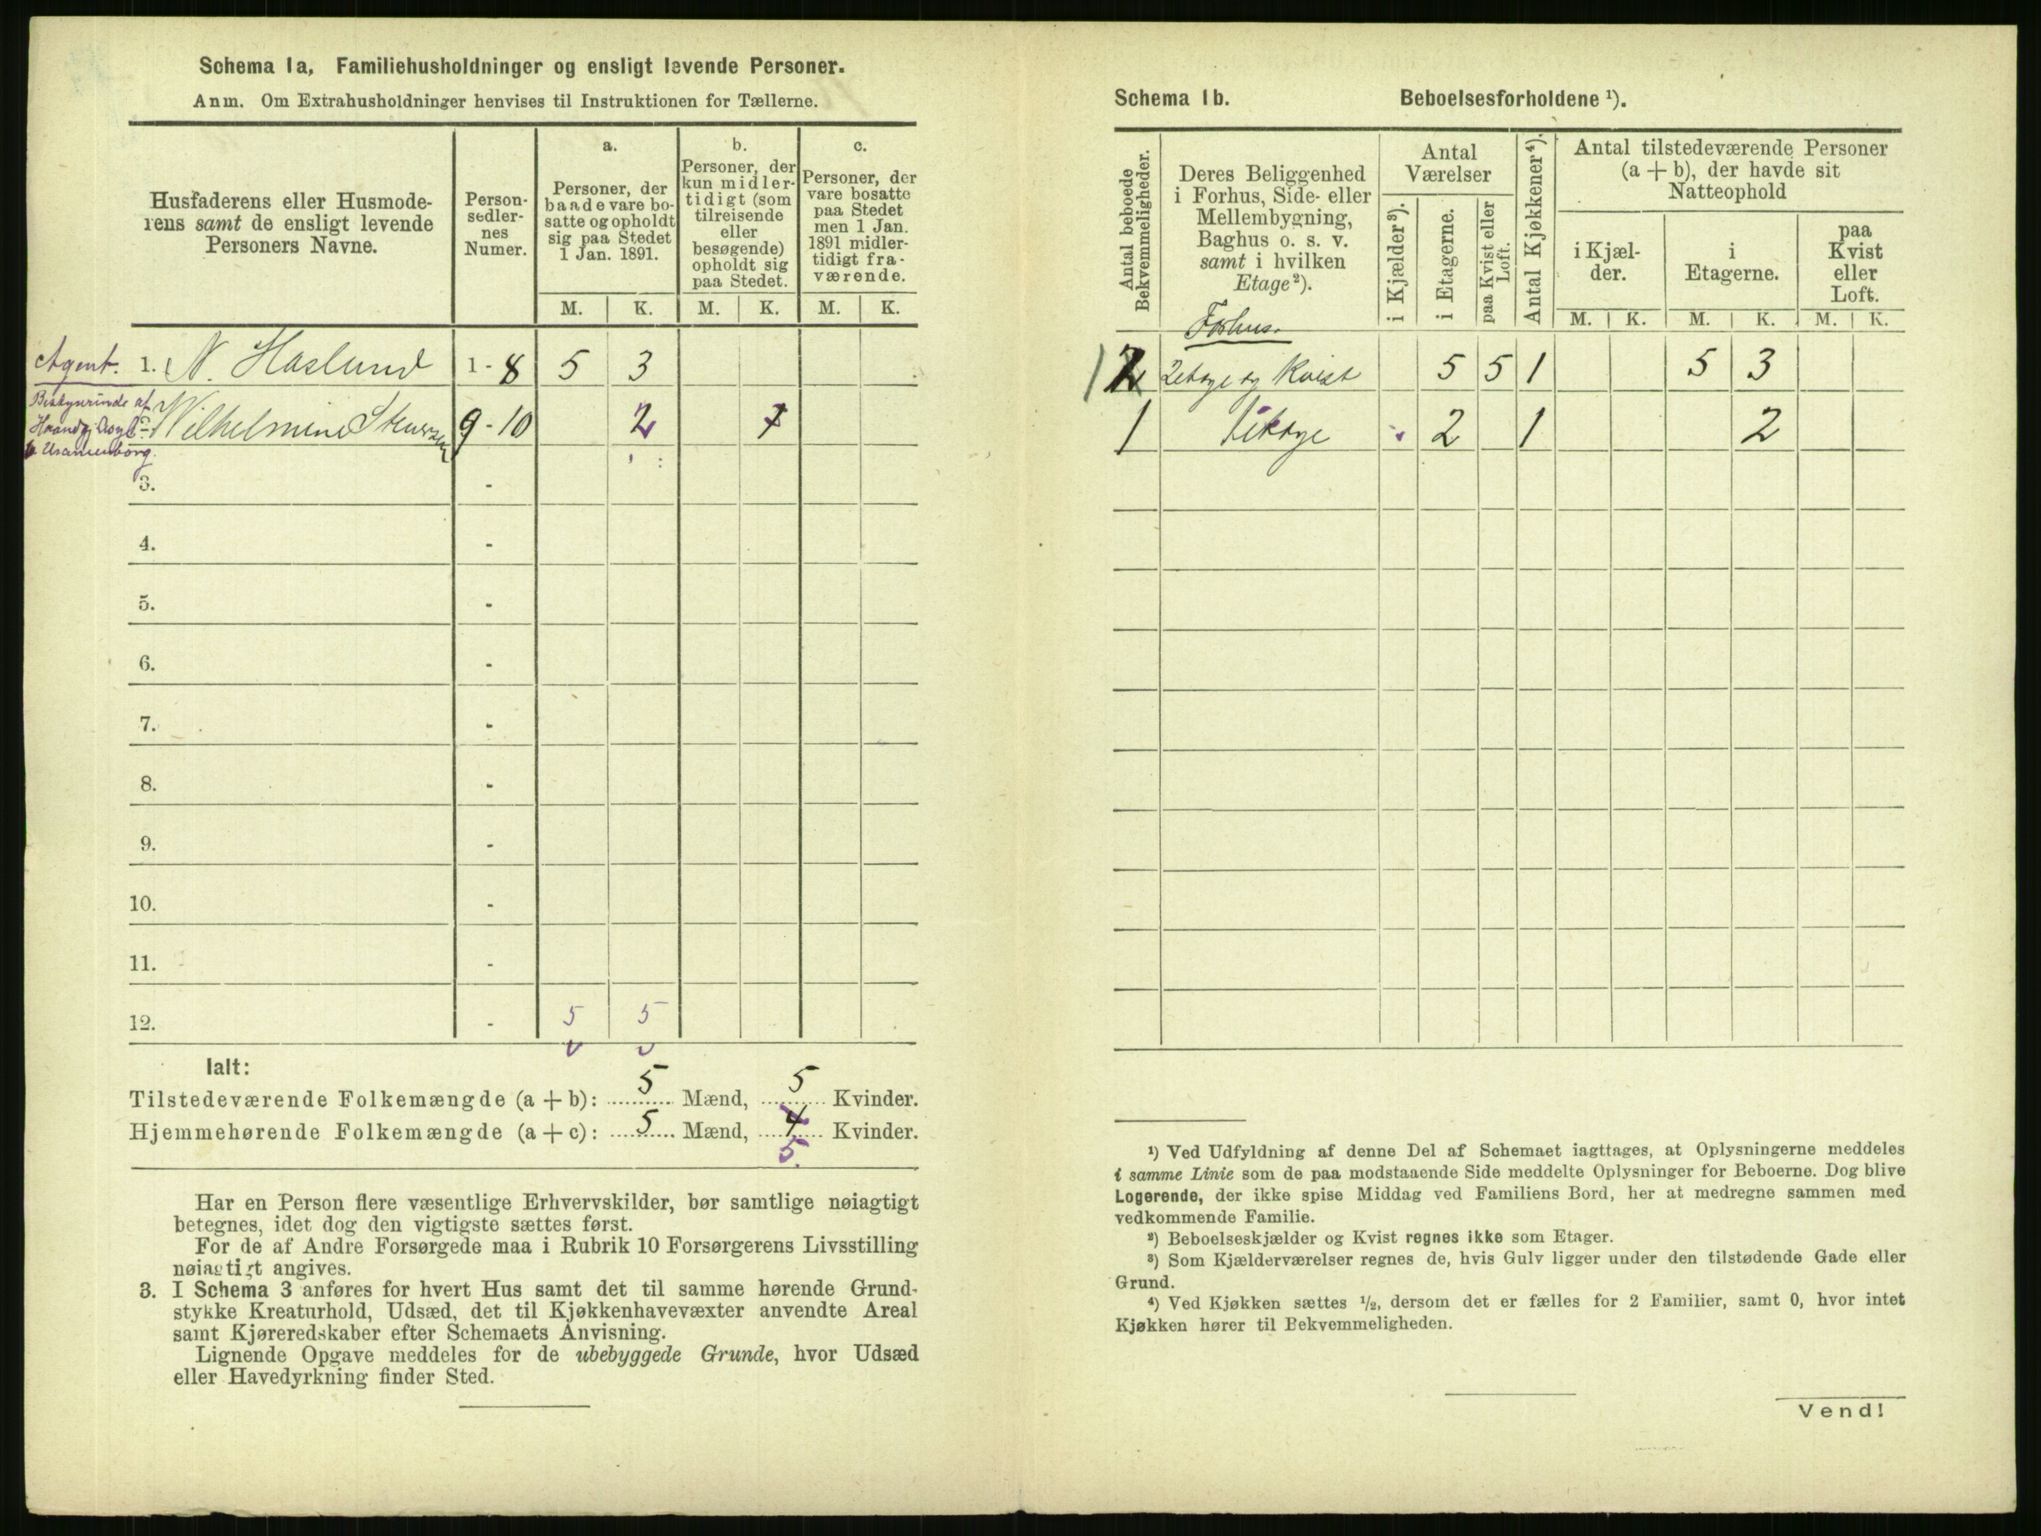 Schema 1a, Familiehusholdninger og ensligt levende Personer.
Anm. Om Extrahusholdninger henvises til Instruktionen for Tællerne.
Husfaderens eller Husmode-
rens samt de ensligt levende
Personers Navne.
Person-
sedler-
nes
Numer.
a.
Personer, der
baade vare bo-
satte og opholdt
sig paa Stedet
1 Jan. 1891.
b.
Personer, der
kun midler-
tidigt (som
tilreisende
eller
besøgende)
opholdt sig
paa Stedet.
c.
Personer, der
vare bosatte
paa Stedet
men 1 Jan.
1891 midler-
tidigt fra-
værende.
M. K. M. K. M. K.
Agent. 1. N. Haslund 1 - 8 5 3
af
Wilhelmine 9 - 10 2
3. -
4. -
5. -
6. -
7. -
8. -
9. -
10. -
11. -
12. - 5 5
Ialt:
Tilstedeværende Folkemængde (a + b): 5 Mænd, 5 Kvinder.
Hjemmehørende Folkemængde (a + c): 5 Mænd, 4 Kvinder.
5.
Har en Person flere væsentlige Erhvervskilder, bør samtlige nøiagtigt
betegnes, idet dog den vigtigste sættes først.
For de af Andre Forsørgede maa i Rubrik 10 Forsørgerens Livsstilling
nøiagtigt angives.
3. I Schema 3 anføres for hvert Hus samt det til samme hørende Grund-
stykke Kreaturhold, Udsæd, det til Kjøkkenhavevæxter anvendte Areal
samt Kjøreredskaber efter Schemaets Anvisning.
Lignende Opgave meddeles for de ubebyggede Grunde, hvor Udsæd
eller Havedyrkning finder Sted.
Schema 1b. Beboelsesforholdene ¹).
Antal beboede
Bekvemmeligheder.
Deres Beliggenhed
i Forhus, Side- eller
Mellembygning,
Baghus o. s. v.
samt i hvilken
Etage²).
Antal
Værelser
i Kjælder³).
i Etagerne.
paa Kvist eller
Loft.
Antal Kjøkkener⁴).
Antal tilstedeværende Personer
(a + b), der havde sit
Natteophold
i Kjæl-
der.
i
Etagerne.
paa
Kvist
eller
Loft.
M. K. M. K. M. K.
Forhus.
1 2 2 Etage og Kvist 5 5 1 5 3
1 1 Etage 2 1 2
¹) Ved Udfyldning af denne Del af Schemaet iagttages, at Oplysningerne meddeles
i samme Linie som de paa modstaaende Side meddelte Oplysninger for Beboerne. Dog blive
Logerende, der ikke spise Middag ved Familiens Bord, her at medregne sammen med
vedkommende Familie.
²) Beboelseskjælder og Kvist regnes ikke som Etager.
³) Som Kjælderværelser regnes de, hvis Gulv ligger under den tilstødende Gade eller
Grund.
⁴) Ved Kjøkken sættes ½, dersom det er fælles for 2 Familier, samt 0, hvor intet
Kjøkken hører til Bekvemmeligheden.
Vend!